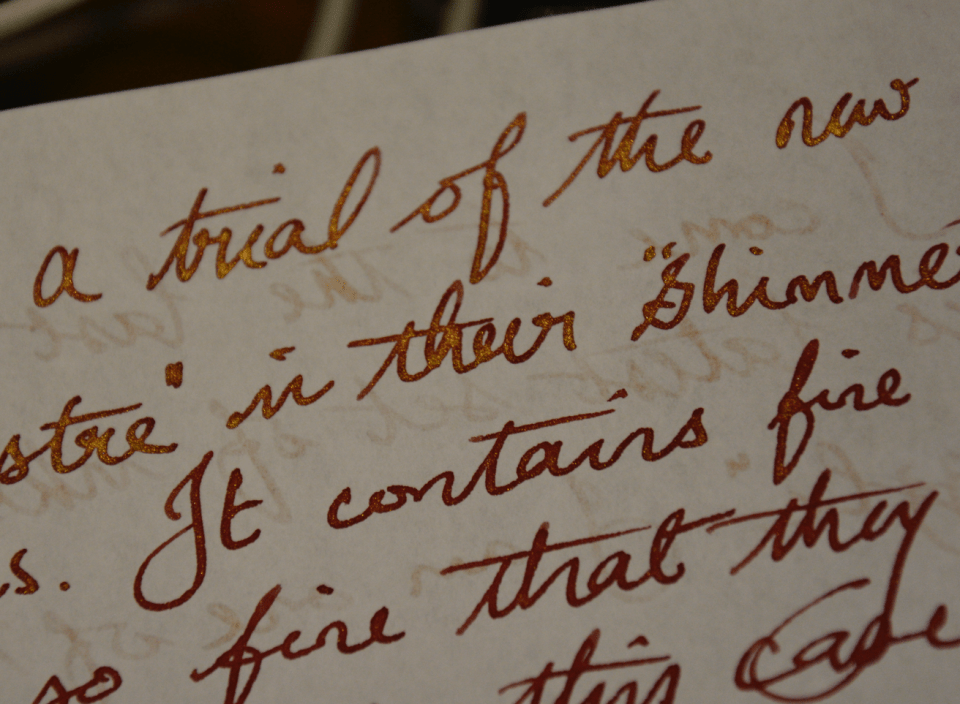 a trial of the new
stre" in their "Shimme
s. It contains fine
so fine that they
this case